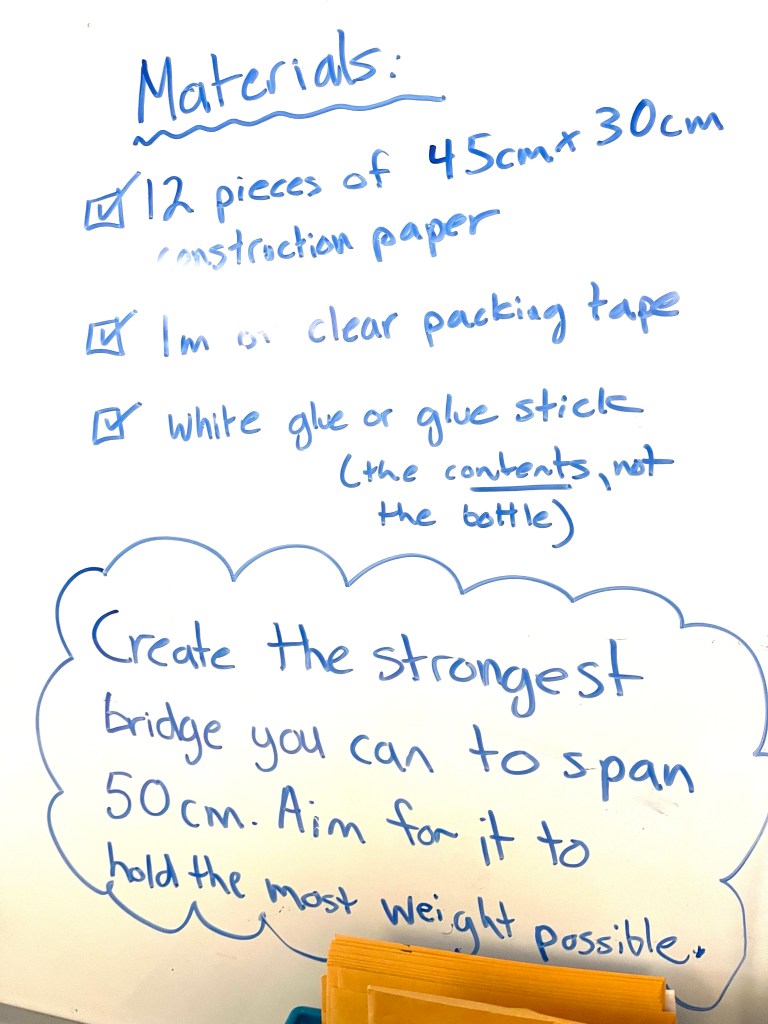 Materials:
12 pieces of 45cm x 30cm
construction paper
1m of clear packing tape
white glue or glue stick
(the contents, not
the bottle)
Create the strongest
bridge you can to span
50cm. Aim for it to
hold the most weight possible.